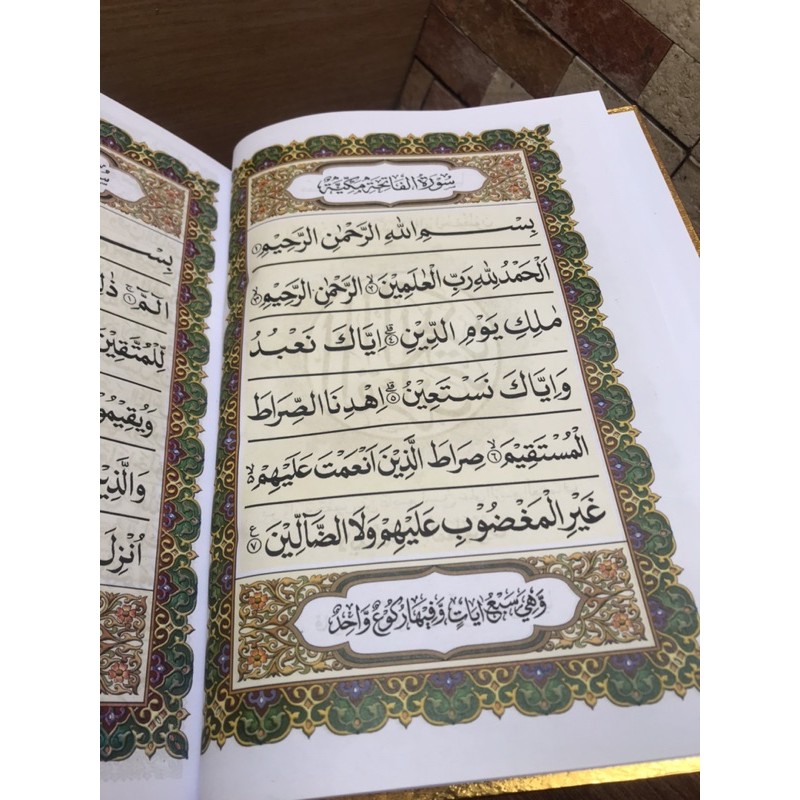 سُوْرَةُ الْفَاتِحَةِ مَكِّيَّةٌ
بِسْمِ اللهِ الرَّحْمٰنِ الرَّحِيْمِ ۝١
اَلْحَمْدُ لِلّٰهِ رَبِّ الْعٰلَمِيْنَ ۝٢ الرَّحْمٰنِ الرَّحِيْمِ ۝٣
مٰلِكِ يَوْمِ الدِّيْنِ ۝٤ اِيَّاكَ نَعْبُدُ
وَاِيَّاكَ نَسْتَعِيْنُ ۝٥ اِهْدِنَا الصِّرَاطَ
الْمُسْتَقِيْمَ ۝٦ صِرَاطَ الَّذِيْنَ اَنْعَمْتَ عَلَيْهِمْ
غَيْرِ الْمَغْضُوْبِ عَلَيْهِمْ وَلَا الضَّآلِّيْنَ ۝٧
وَهِيَ سَبْعُ اٰيَاتٍ وَّفِيْهَا رُكُوْعٌ وَّاحِدٌ
بِسْـ
الٓمّٓ ۝١ ذٰلِـ
لِّلْمُتَّقِيْنَ
وَيُقِيْمُو
وَالَّذِيْنَ
اُنْزِلَ